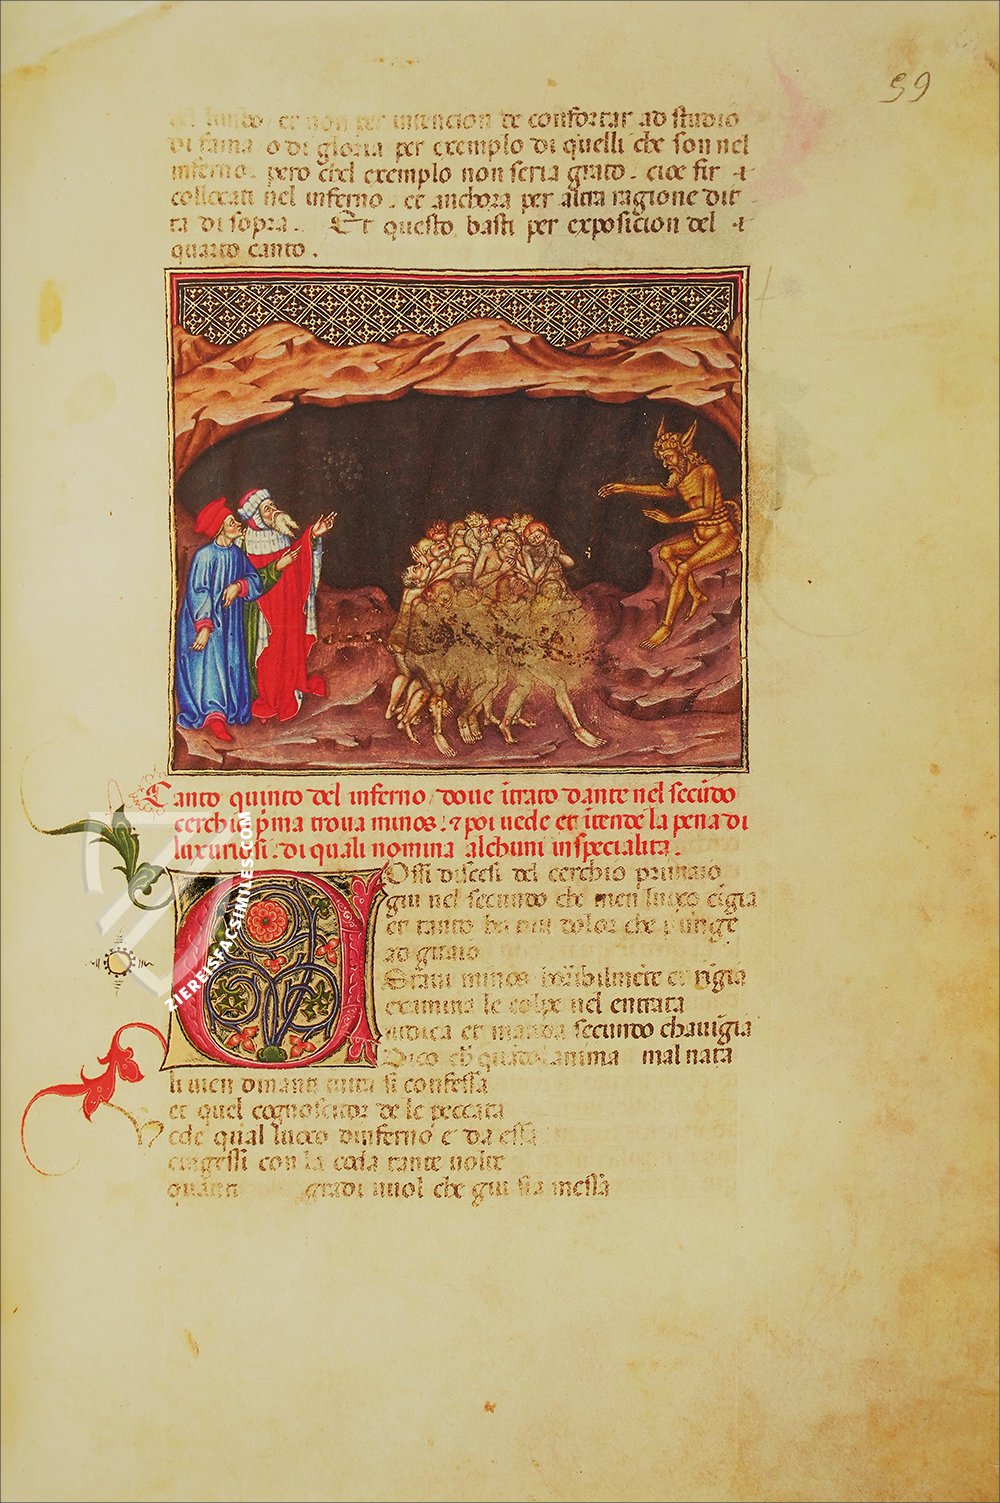 59
del limbo. et non per intencion de confortar ad studio
di fama o di gloria per exemplo di quelli che son nel
inferno. pero chel exemplo non seria grato. cioe fir
collocati nel inferno. et anchora per altra ragione dit
ta di sopra. Et questo basti per exposicion del
quarto canto.
Canto quinto del inferno doue ītrato dante nel secūdo
cerchio p̄ma troua minos. ⁊ poi uede et ītende la pena di
luxuriosi. di quali nomina alchuni in specialita.
Ossi discesi del cerchio primaio
giu nel secundo che men luoco cīgia
et tanto ha piu dolor che punge
ad guaio
Staui minos horribilmēte et rīgia
examina le colpe nel entrata
iudica et manda secundo chauīgia
Dico ch̄ quādo lanima mal nata
li uien dinanti tutta si confessa
et quel cognoscitor de le peccata
Vede qual luoco dinferno e da essa
cingessi con la coda tante uolte
quāti gradi uuol che giu sia messa
ZIEREISFACSIMILES.COM